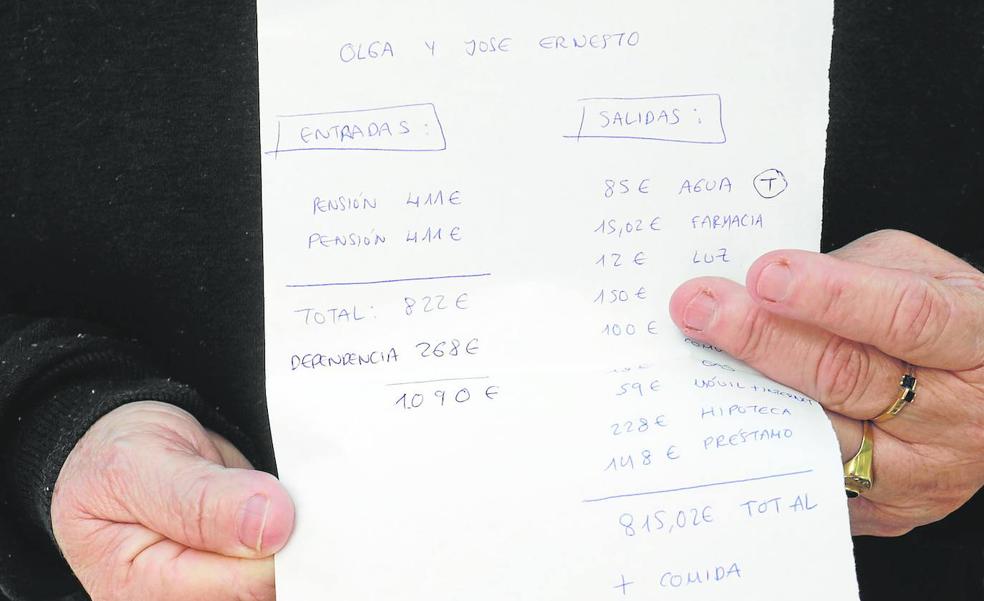 OLGA Y JOSE ERNESTO
ENTRADAS :
PENSIÓN 411€
PENSIÓN 411€
TOTAL: 822€
DEPENDENCIA 268€
1.090 €
SALIDAS :
85€ AGUA T
15,02€ FARMACIA
12€ LUZ
150€
100€
59€ MÓVIL + INTERNET
228€ HIPOTECA
148€ PRÉSTAMO
815,02€ TOTAL
+ COMIDA